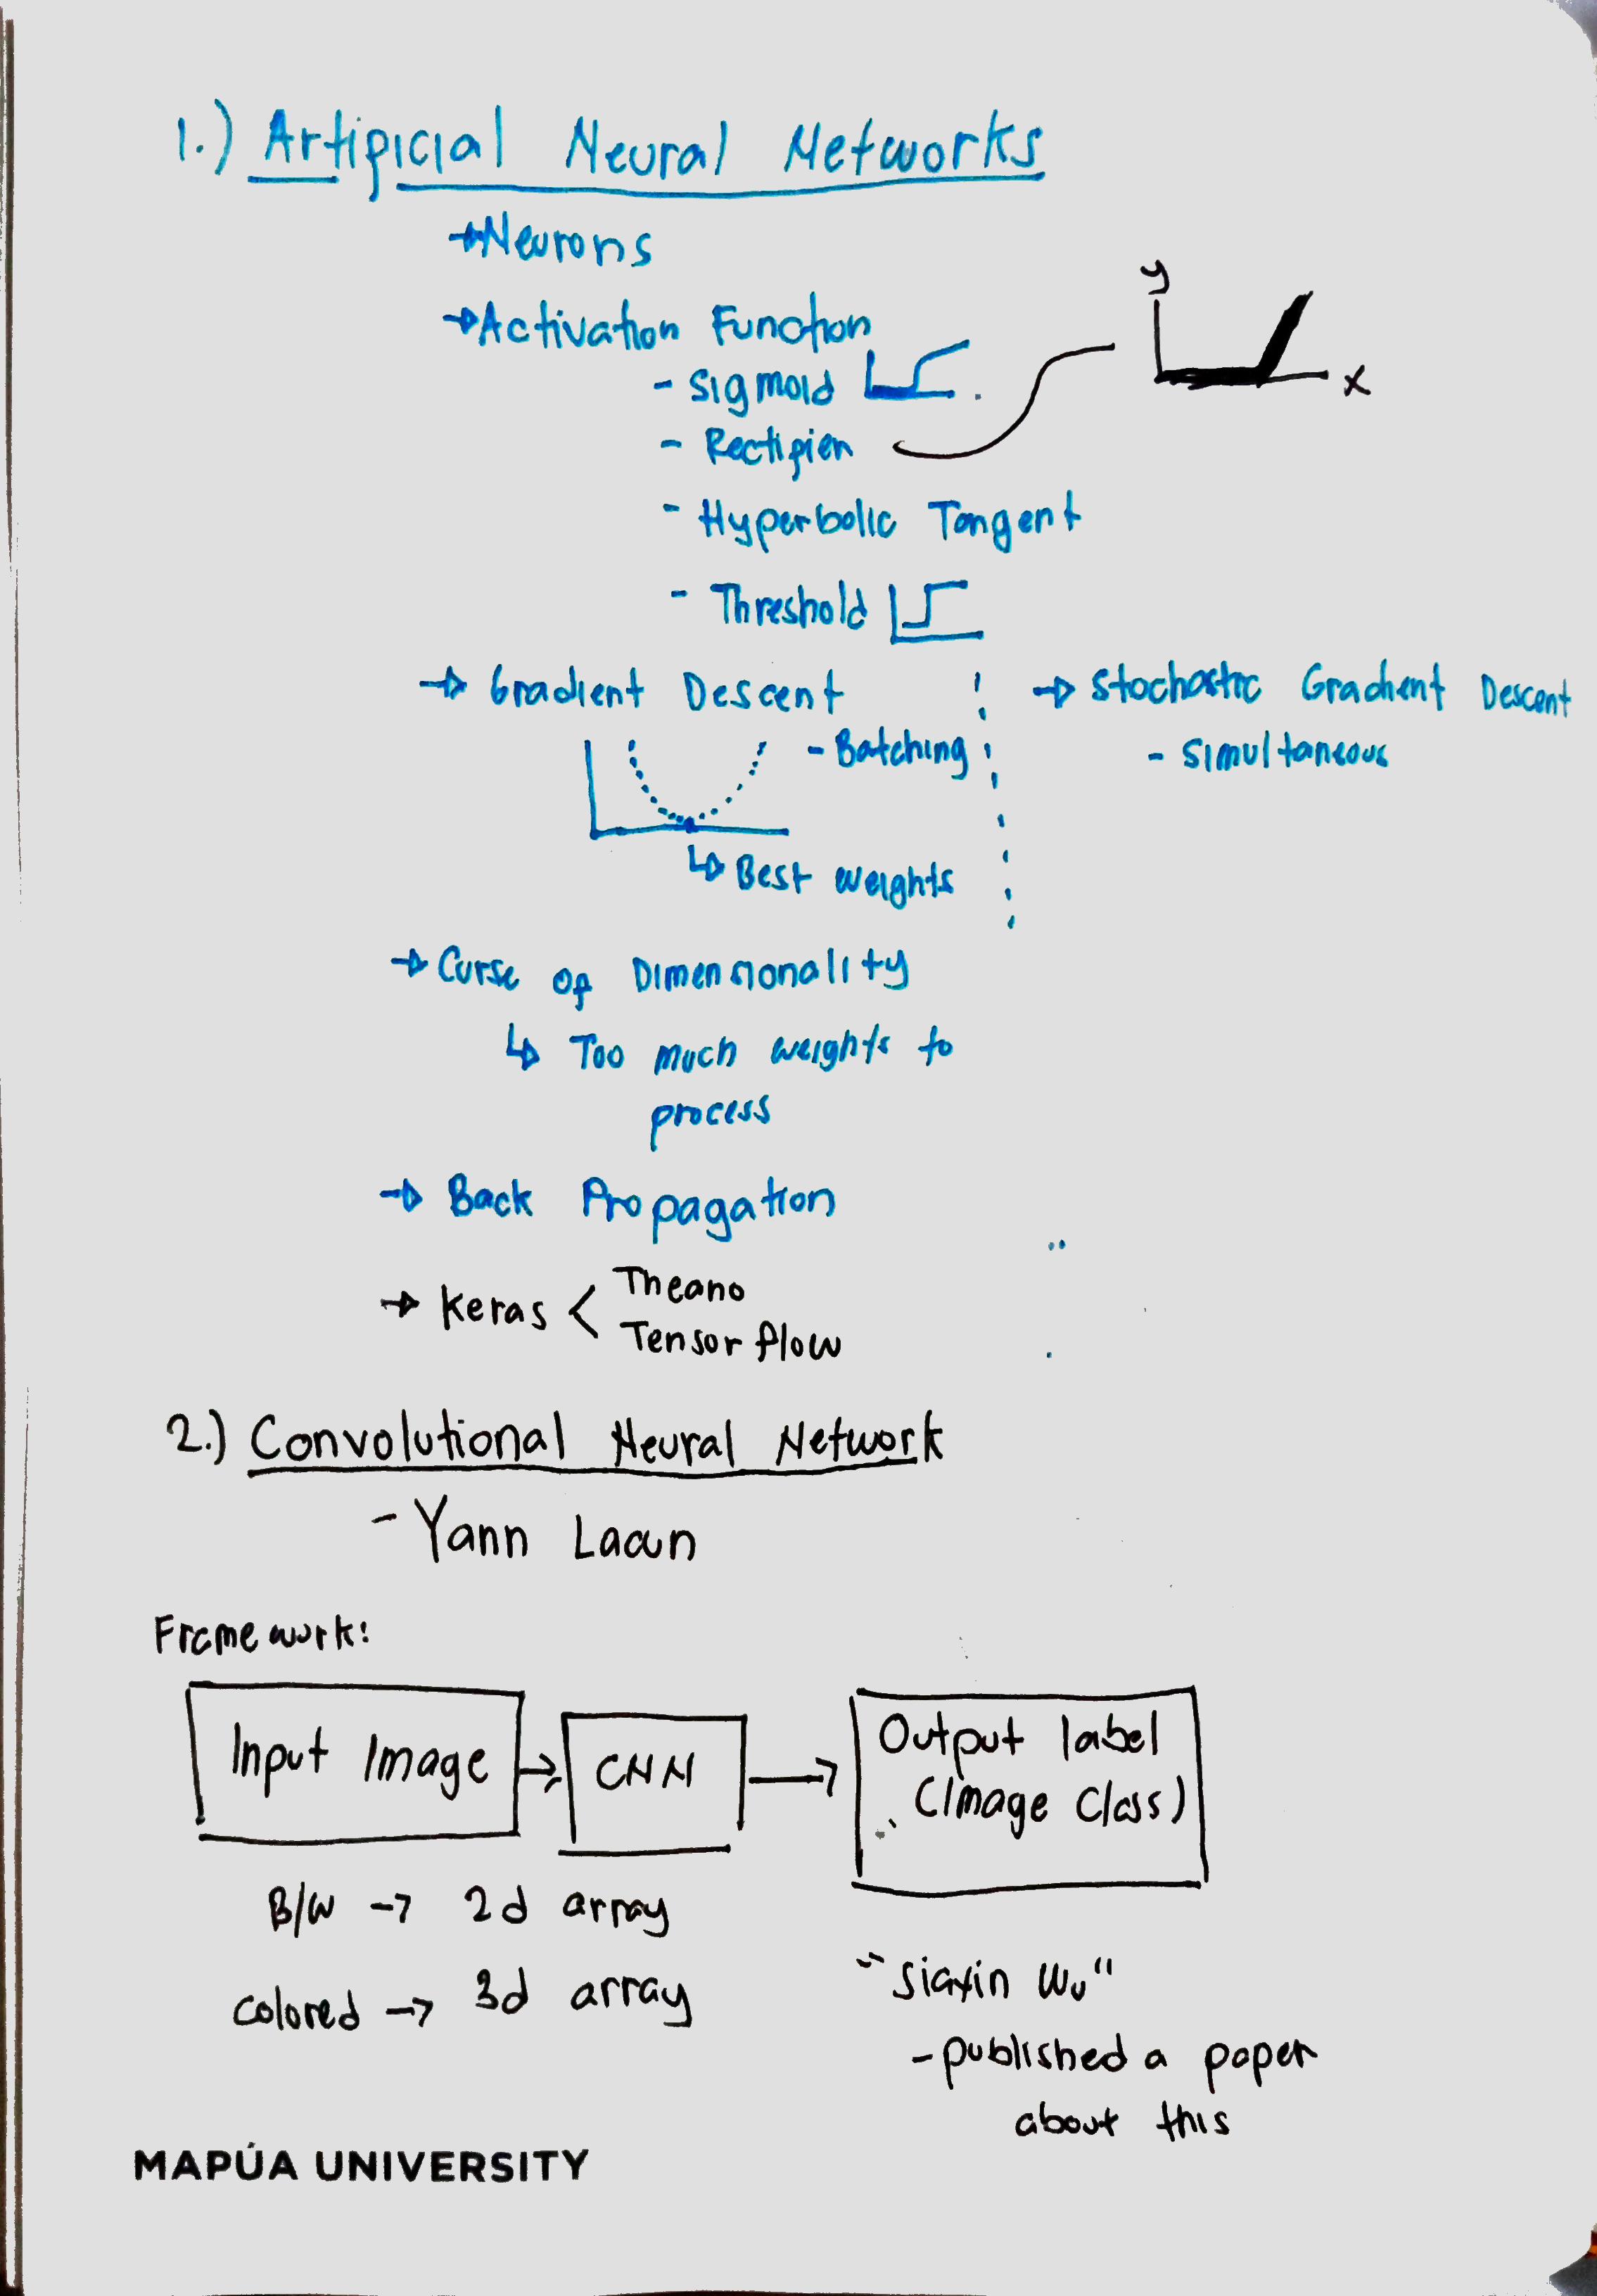 1.) Artificial Neural Networks
→ Neurons
→ Activation Function
- Sigmoid
- Rectifier
y
x
- Hyperbolic Tangent
- Threshold
→ Gradient Descent
- Batching
↳ Best weights
→ Stochastic Gradient Descent
- Simultaneous
→ Curse of Dimensionality
↳ Too much weights to
process
→ Back Propagation
→ Keras < Theano
Tensor flow
2.) Convolutional Neural Network
- Yann
Framework:
Input Image → CNN → Output label
(Image Class)
B/W → 2d array
colored → 3d array
Wu"
- published a paper
about this
MAPÚA UNIVERSITY